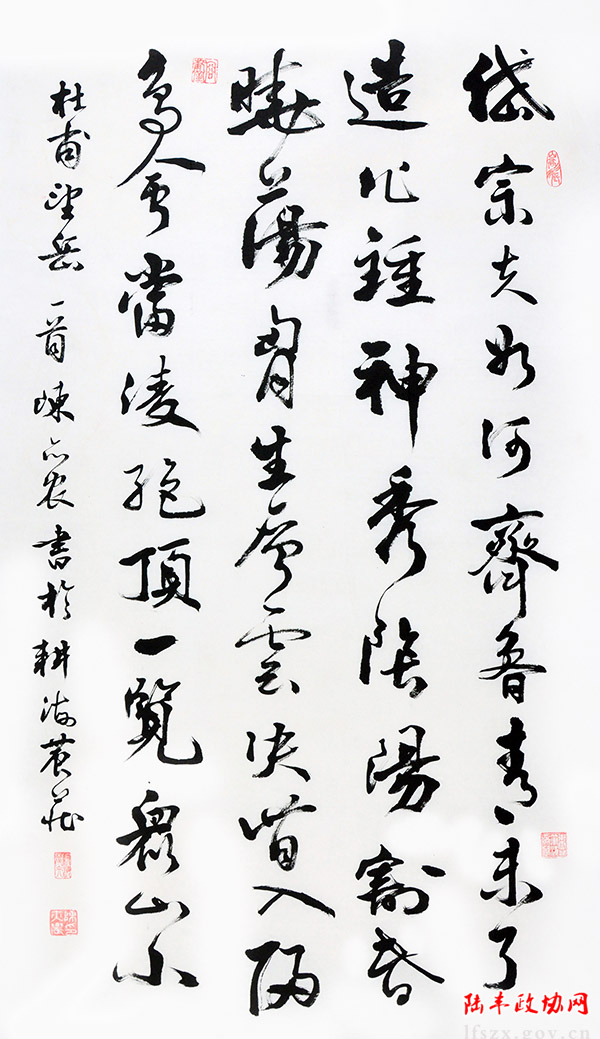 岱宗夫如何齊魯青未了
造化鍾神秀陰陽割昏
曉蕩胷生層雲決眥入歸
鳥會當凌絕頂一覽眾山小
杜甫望岳一首陳农書於耕海農莊
陆丰政协网
lfszx.gov.cn